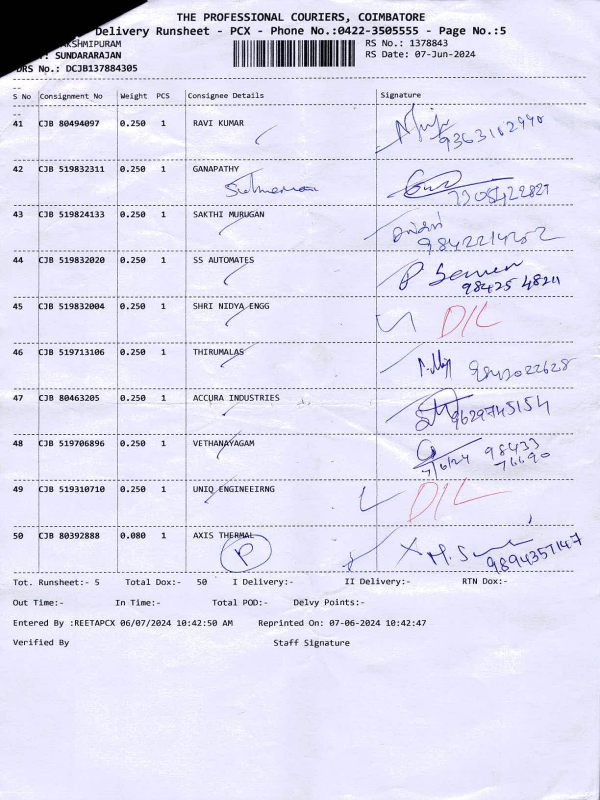 THE PROFESSIONAL COURIERS, COIMBATORE
Delivery Runsheet - PCX - Phone No.:0422-3505555 - Page No.:5
AKSHMIPURAM RS No.: 1378843
: SUNDARARAJAN RS Date: 07-Jun-2024
DRS No.: DCJB137884305
--
S No Consignment No Weight PCS Consignee Details Signature
--
41 CJB 80494097 0.250 1 RAVI KUMAR
42 CJB 519832311 0.250 1 GANAPATHY
43 CJB 519824133 0.250 1 SAKTHI MURUGAN
9842214252
44 CJB 519832020 0.250 1 SS AUTOMATES
98425 48211
45 CJB 519832004 0.250 1 SHRI NIDYA ENGG D/L
46 CJB 519713106 0.250 1 THIRUMALAS
9843022628
47 CJB 80463205 0.250 1 ACCURA INDUSTRIES
9629745154
48 CJB 519706896 0.250 1 VETHANAYAGAM
7/6/24 98433
76690
49 CJB 519310710 0.250 1 UNIQ ENGINEEIRNG D/L
50 CJB 80392888 0.080 1 AXIS THERMAL
P
9894357147
Tot. Runsheet:- 5 Total Dox:- 50 I Delivery:- II Delivery:- RTN Dox:-
Out Time:- In Time:- Total POD:- Delvy Points:-
Entered By :REETAPCX 06/07/2024 10:42:50 AM Reprinted On: 07-06-2024 10:42:47
Verified By Staff Signature